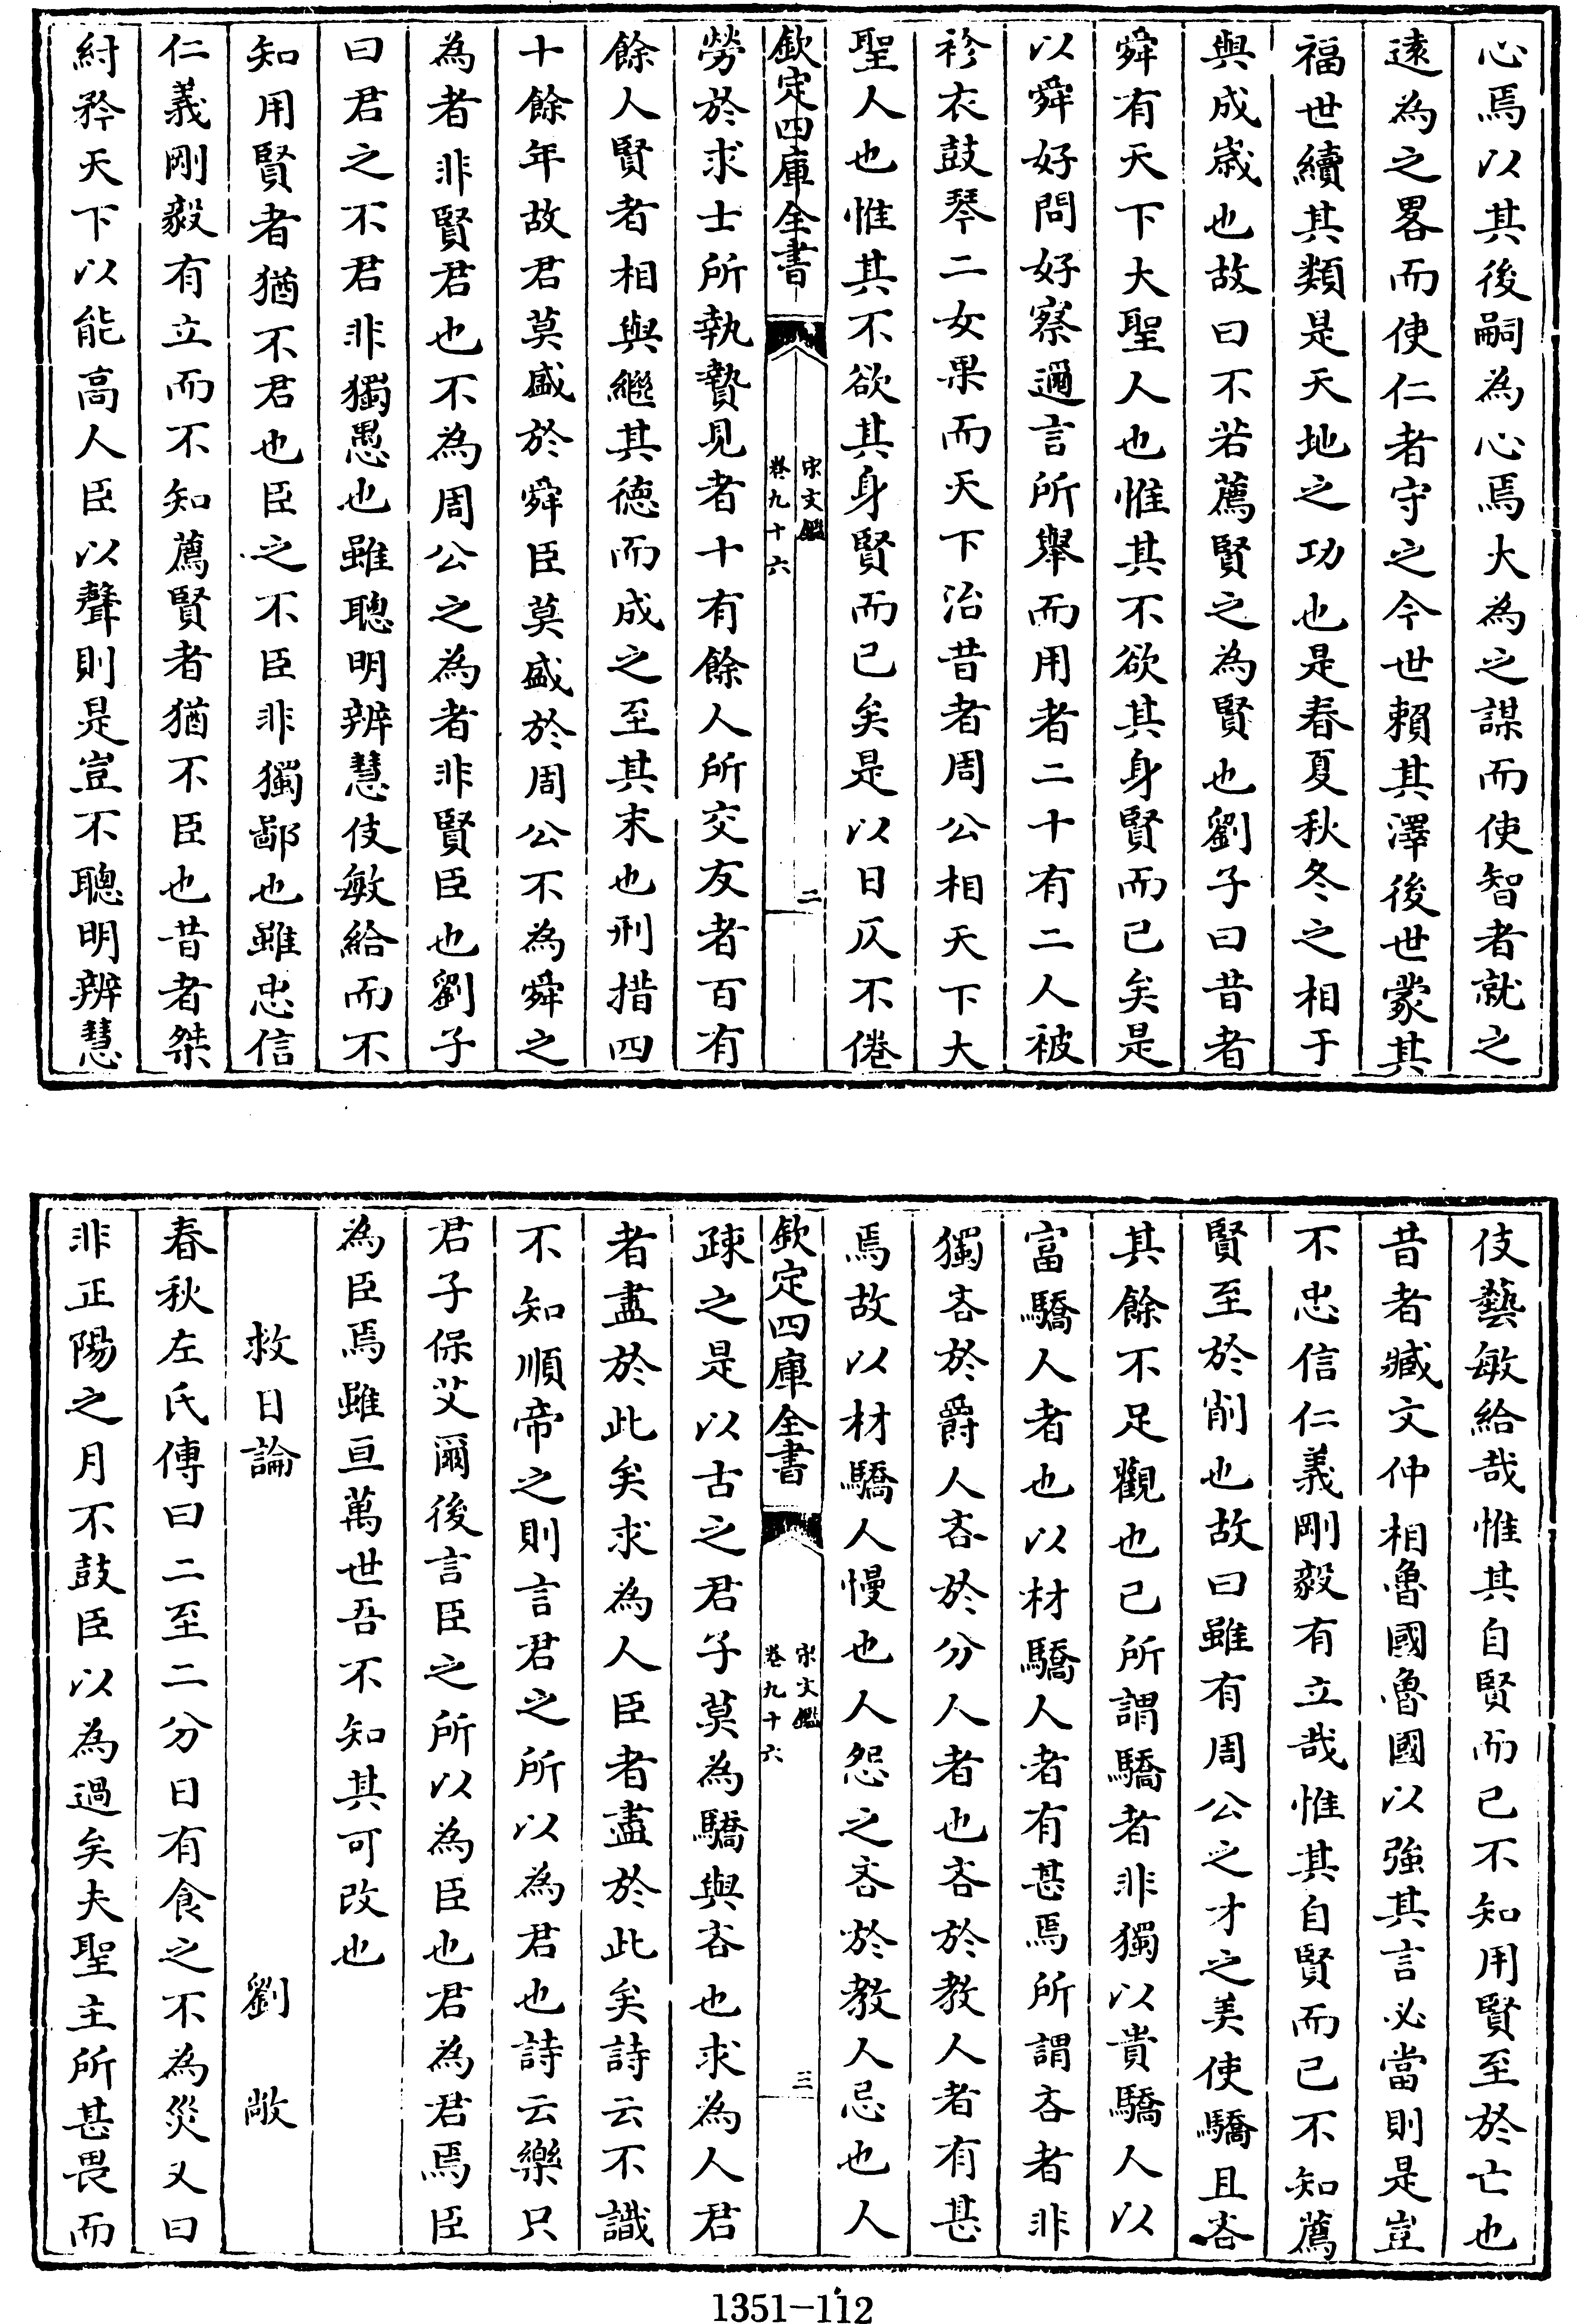 心焉以其後嗣為心焉大為之謀而使智者就之
遠為之畧而使仁者守之今世賴其澤後世蒙其
福世續其類是天地之功也是春夏秋冬之相于
與成嵗也故曰不若薦賢之為賢也劉子曰昔者
舜有天下大聖人也惟其不欲其身賢而已矣是
以舜好問好察邇言所舉而用者二十有二人被
袗衣鼓琴二女果而天下治昔者周公相天下大
聖人也惟其不欲其身賢而已矣是以日仄不倦
欽定四庫全書
宋文鑑
卷九十六
二
勞於求士所執贄見者十有餘人所交友者百有
餘人賢者相與繼其徳而成之至其末也刑措四
十餘年故君莫盛於舜臣莫盛於周公不為舜之
為者非賢君也不為周公之為者非賢臣也劉子
曰君之不君非獨愚也雖聰明辨慧伎敏給而不
知用賢者猶不君也臣之不臣非獨鄙也雖忠信
仁義剛毅有立而不知薦賢者猶不臣也昔者桀
紂矜天下以能高人臣以聲則是豈不聰明辨慧
伎藝敏給哉惟其自賢而已不知用賢至於亡也
昔者臧文仲相魯國魯國以強其言必當則是豈
不忠信仁義剛毅有立哉惟其自賢而已不知薦
賢至於削也故曰雖有周公之才之美使驕且吝
其餘不足觀也已所謂驕者非獨以貴驕人以
富驕人者也以材驕人者有甚焉所謂吝者非
獨吝於爵人吝於分人者也吝於教人者有甚
焉故以材驕人慢也人怨之吝於教人忌也人
欽定四庫全書
宋文鑑
卷九十六
三
疎之是以古之君子莫為驕與吝也求為人君
者盡於此矣求為人臣者盡於此矣詩云不識
不知順帝之則言君之所以為君也詩云樂只
君子保艾爾後言臣之所以為臣也君為君焉臣
為臣焉雖亘萬世吾不知其可改也
救日論　劉敞
春秋左氏傳曰二至二分日有食之不為災又曰
非正陽之月不鼓臣以為過矣夫聖主所甚畏而
1351-112